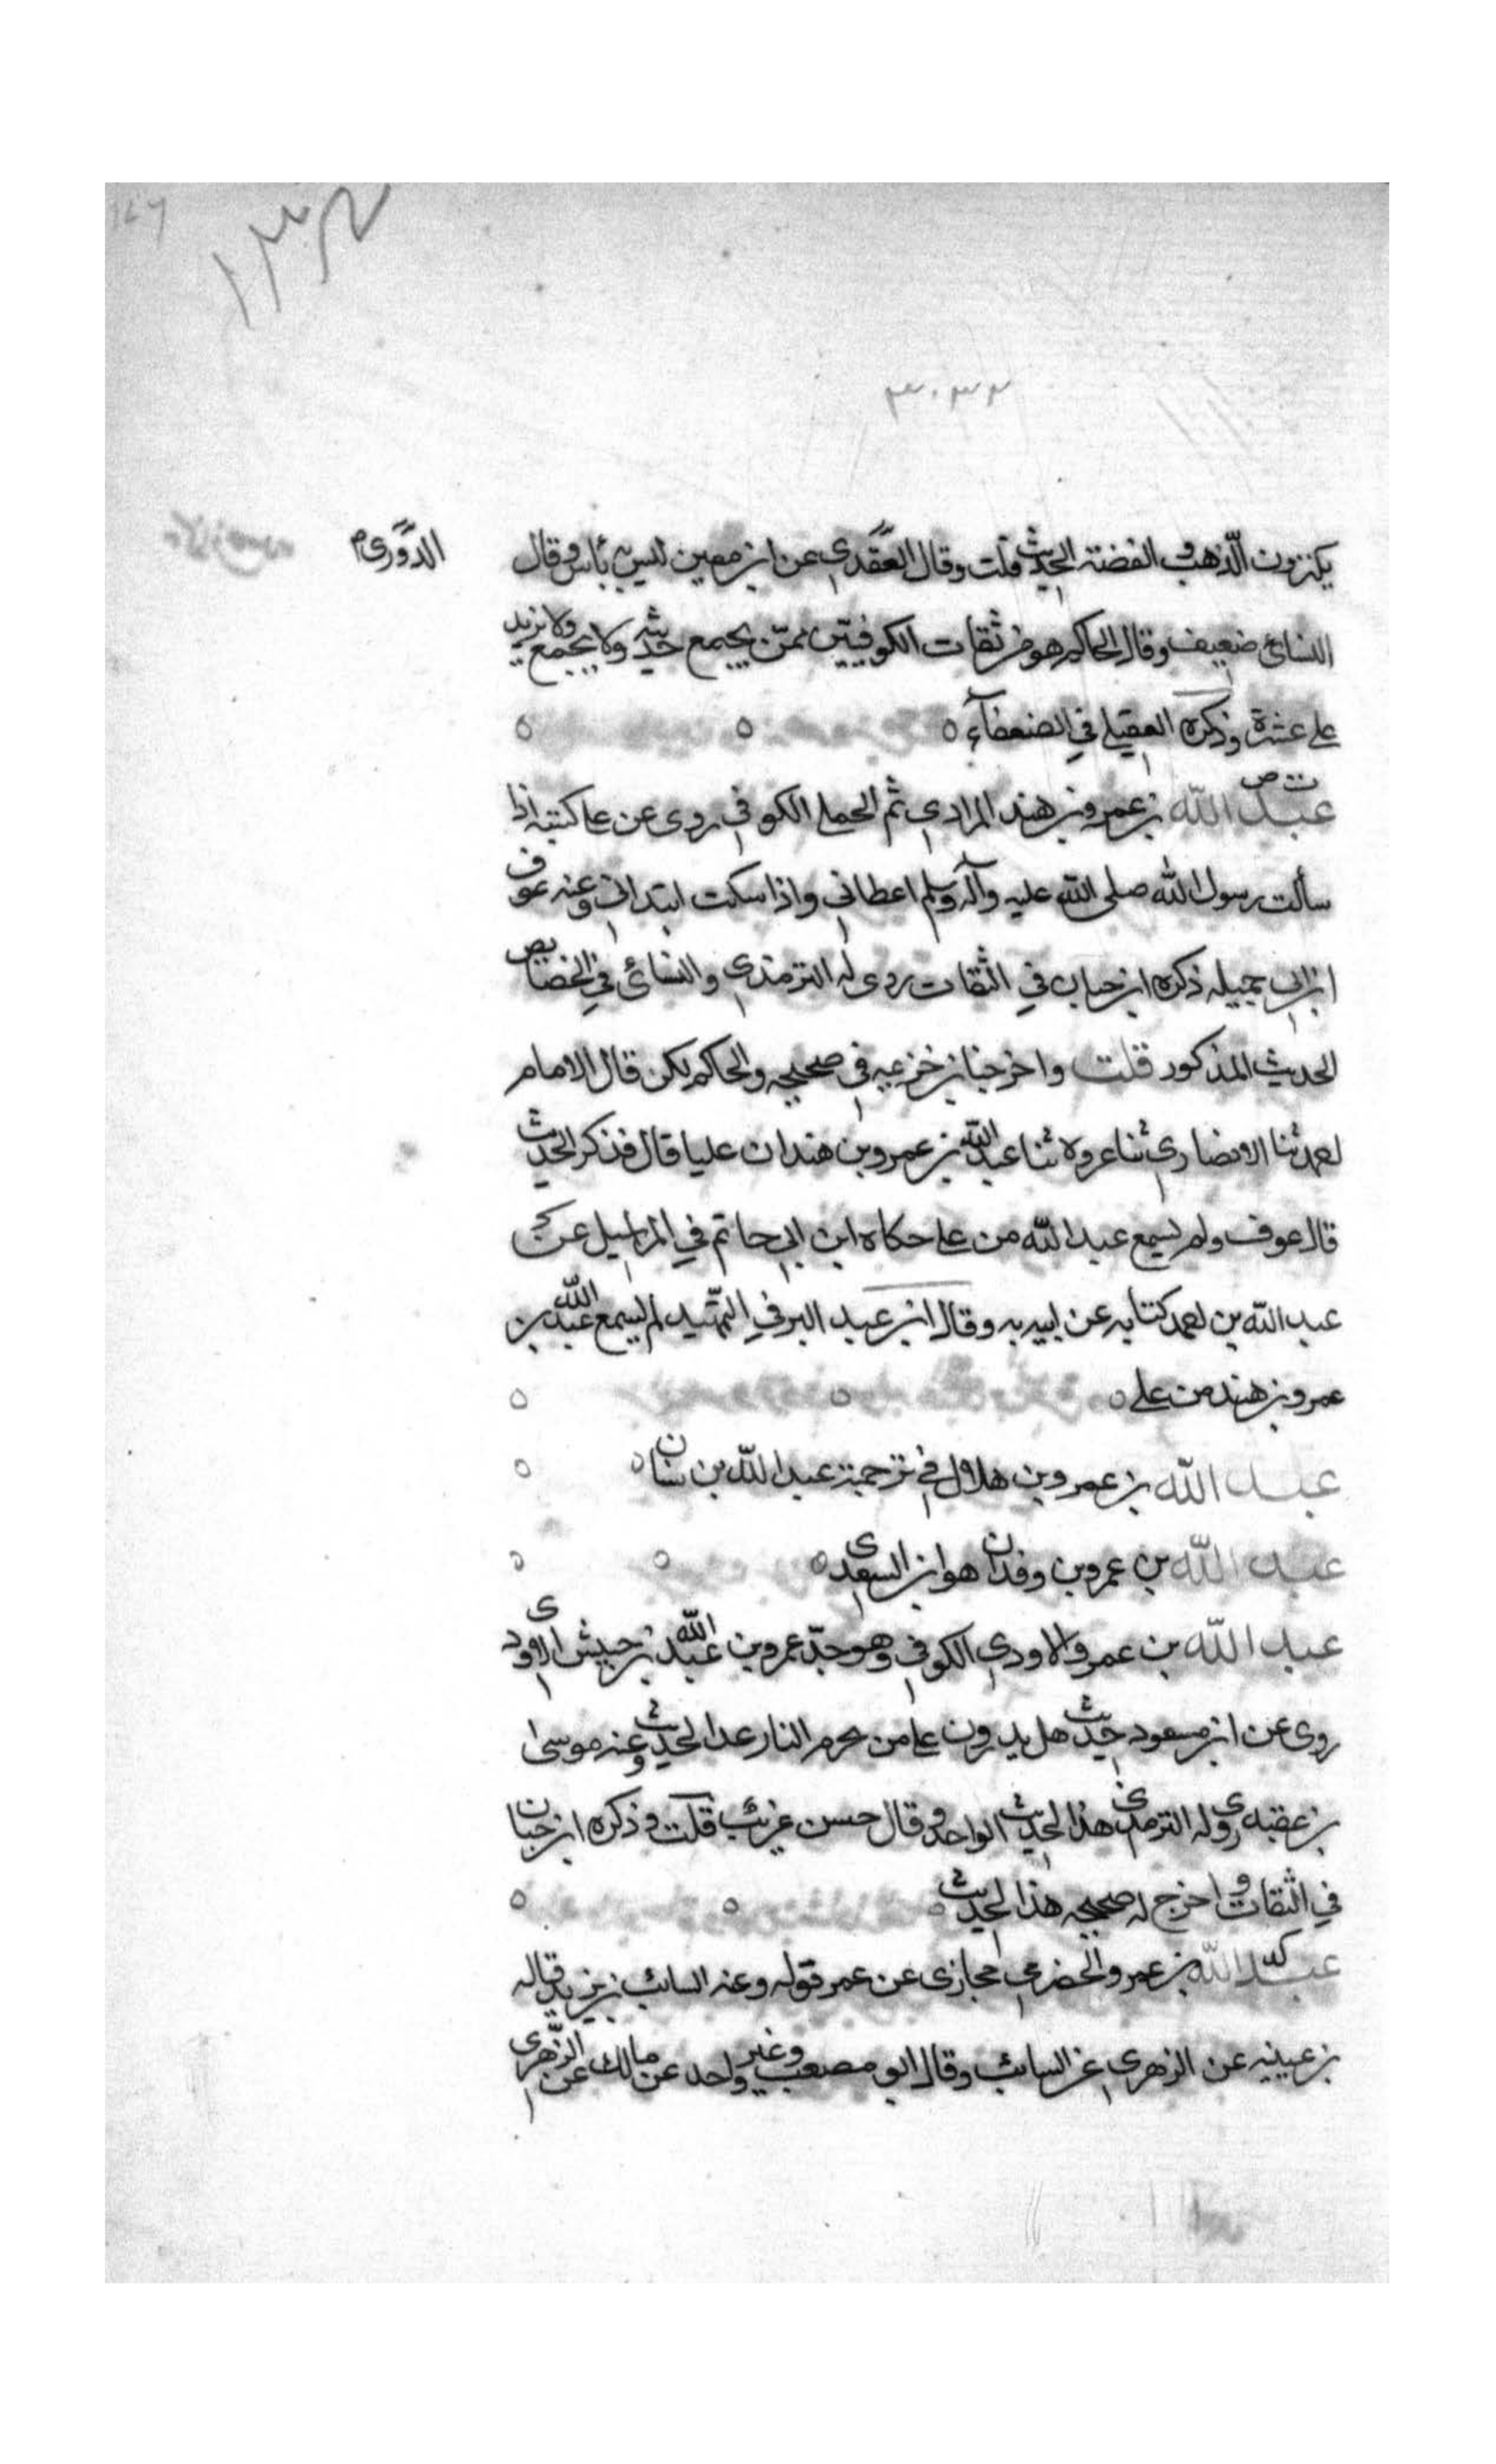 ١٣٤
٣٠٣٢
يكنزون الذهب والفضة الحديث قلت وقال العقدى عن ابن معين ليس به بأس وقال
الدورى م
النسائى ضعيف وقال الحاكم هو من ثقات الكوفيين ممن يجمع حديثه ولا يجمع ولا يزيد
على عشرة وذكره العقيلى فى الضعفآء
ت ص
عبد الله بن عمرو بن هند المرادى ثم الجملى الكوفى روى عن على كنت اذا
سألت رسول الله صلى الله عليه وآله وسلم اعطانى واذا سكت ابتدانى وعنه عوف
ابن ابى جميله ذكره ابن حبان فى الثقات روى له الترمذى والنسائى فى الخصايص
الحديث المذكور قلت واخرجه ابن خزيمه فى صحيحه والحاكم لكن قال الامام
احمد ثنا الانصارى ثنا عروه ثنا عبد الله بن عمرو بن هند ان عليا قال فذكر الحديث
قال عوف ولم يسمع عبد الله من على حكاه ابن ابى حاتم فى المراسيل عن
عبد الله بن احمد كتابه عن ابيه به وقال ابن عبد البر فى التمهيد لم يسمع عبد الله بن
عمرو بن هند من على
عبد الله بن عمرو بن هلال فى ترجمة عبد الله بن سنان
عبد الله بن عمرو بن وفدان هو ابن السعدى
عبد الله بن عمرو الاودى الكوفى وهو جد عمرو بن عبد الله بن حبيش الاودى
روى عن ابن مسعود حديث هل يدرون على من يحرم النار غدا الحديث وعنه موسى
بن عقبه روى له الترمذى هذا الحديث الواحد وقال حسن غريب قلت وذكره ابن حبان
فى الثقات واخرج له صحيحه هذا الحديث
عبد الله بن عمرو الحضرمى حجازى عن عمر قوله وعنه السائب بن يزيد قاله
بن عيينه عن الزهرى عن السائب وقال ابو مصعب وغير واحد عن مالك عن الزهرى